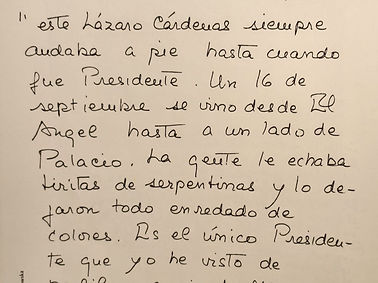 " este Lázaro Cárdenas siempre
andaba a pie hasta cuando
fue Presidente. Un 16 de
septiembre se vino desde El
Angel hasta a un lado de
Palacio. La gente le echaba
tiritas de serpentinas y lo de-
jaron todo enredado de
colores. Es el único Presiden-
te que yo he visto de